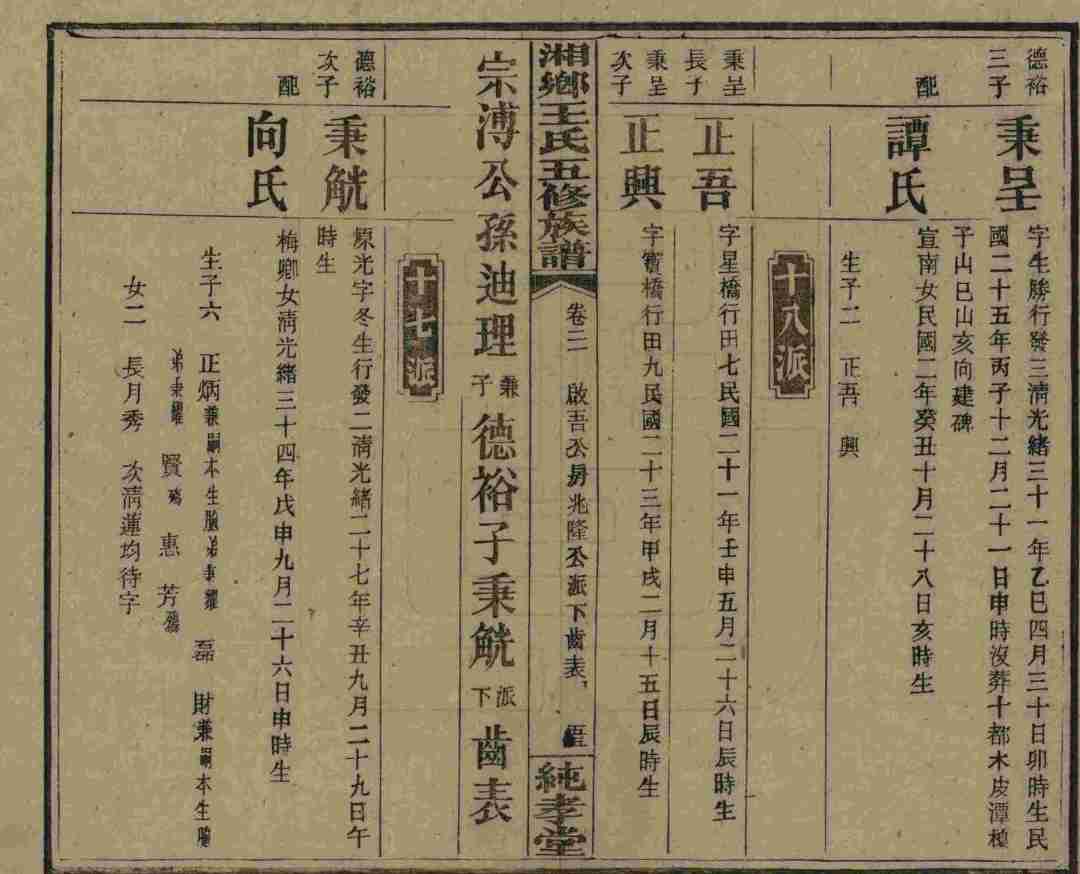 德裕
三子
秉呈
字生勝行發三清光緒三十一年乙巳四月三十日卯時生民
國二十五年丙子十二月二十一日申時沒葬十都木皮潭樟
子山巳山亥向建碑
配
譚氏
宣南女民國二年癸丑十月二十八日亥時生
生子二 正吾 興
十八派
秉呈
長子
正吾
字星橋行田七民國二十一年壬申五月二十六日辰時生
秉呈
次子
正興
字賓橋行田九民國二十三年甲戌二月十五日辰時生
湘鄉王氏五修族譜
卷二 啟吾公房兆隆公派下齒表
純孝堂
宗溥公孫迪理兼子德裕子秉觥派下齒表
十七派
德裕
次子
秉觥
原光字冬生行發二清光緒二十七年辛丑九月二十九日午
時生
配
向氏
梅卿女清光緒三十四年戊申九月二十六日申時生
生子六 正炳兼嗣本生胞弟秉耀 磊 財兼嗣本生胞
弟秉耀 賢殤 惠 芳殤
女二 長月秀 次清蓮均待字